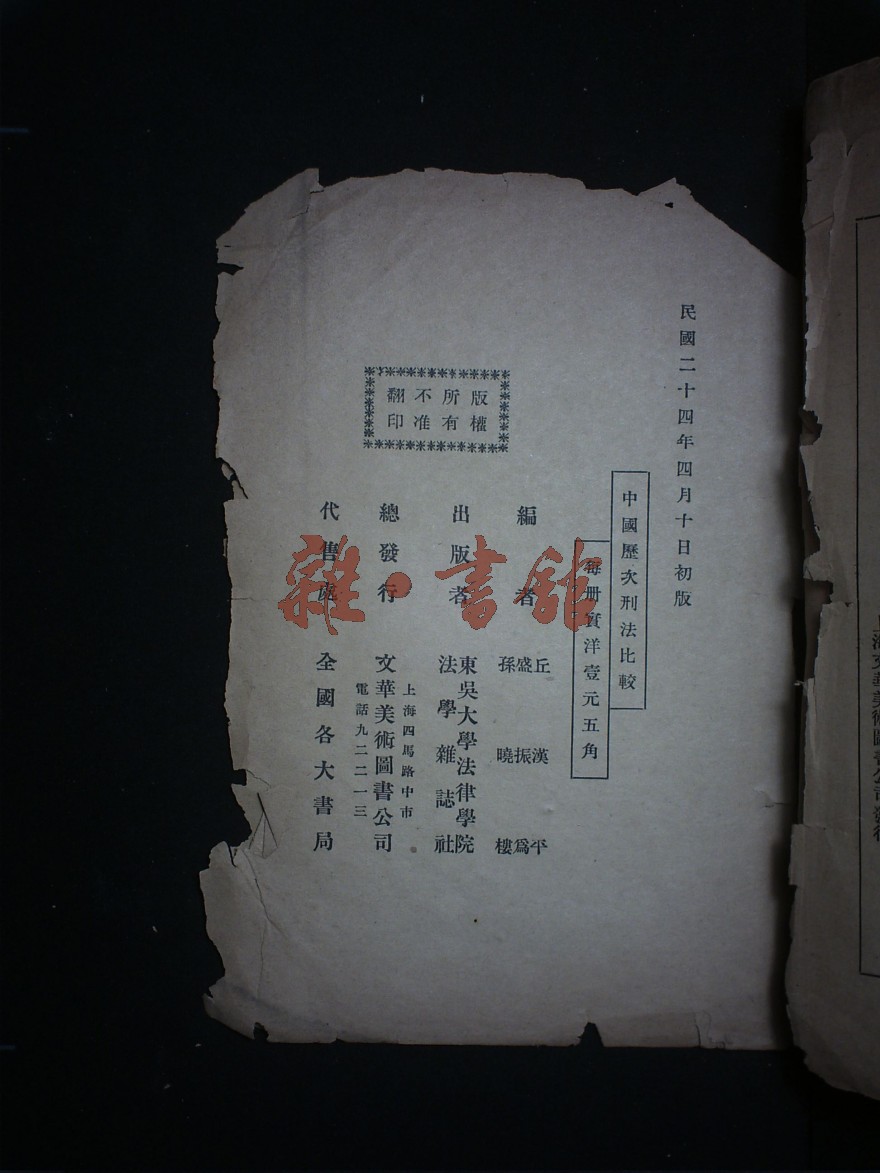 上海文華美術圖書公司發行
民國二十四年四月十日初版
中國歷次刑法比較
每册實洋壹元五角
版權
所有
不准
翻印
編者
丘漢平
盛振爲
孫曉樓
出版者
東吳大學法律學院
法學雜誌社
總發行
上海四馬路中市
文華美術圖書公司
電話九二二一三
代售處
全國各大書局
雜·書館